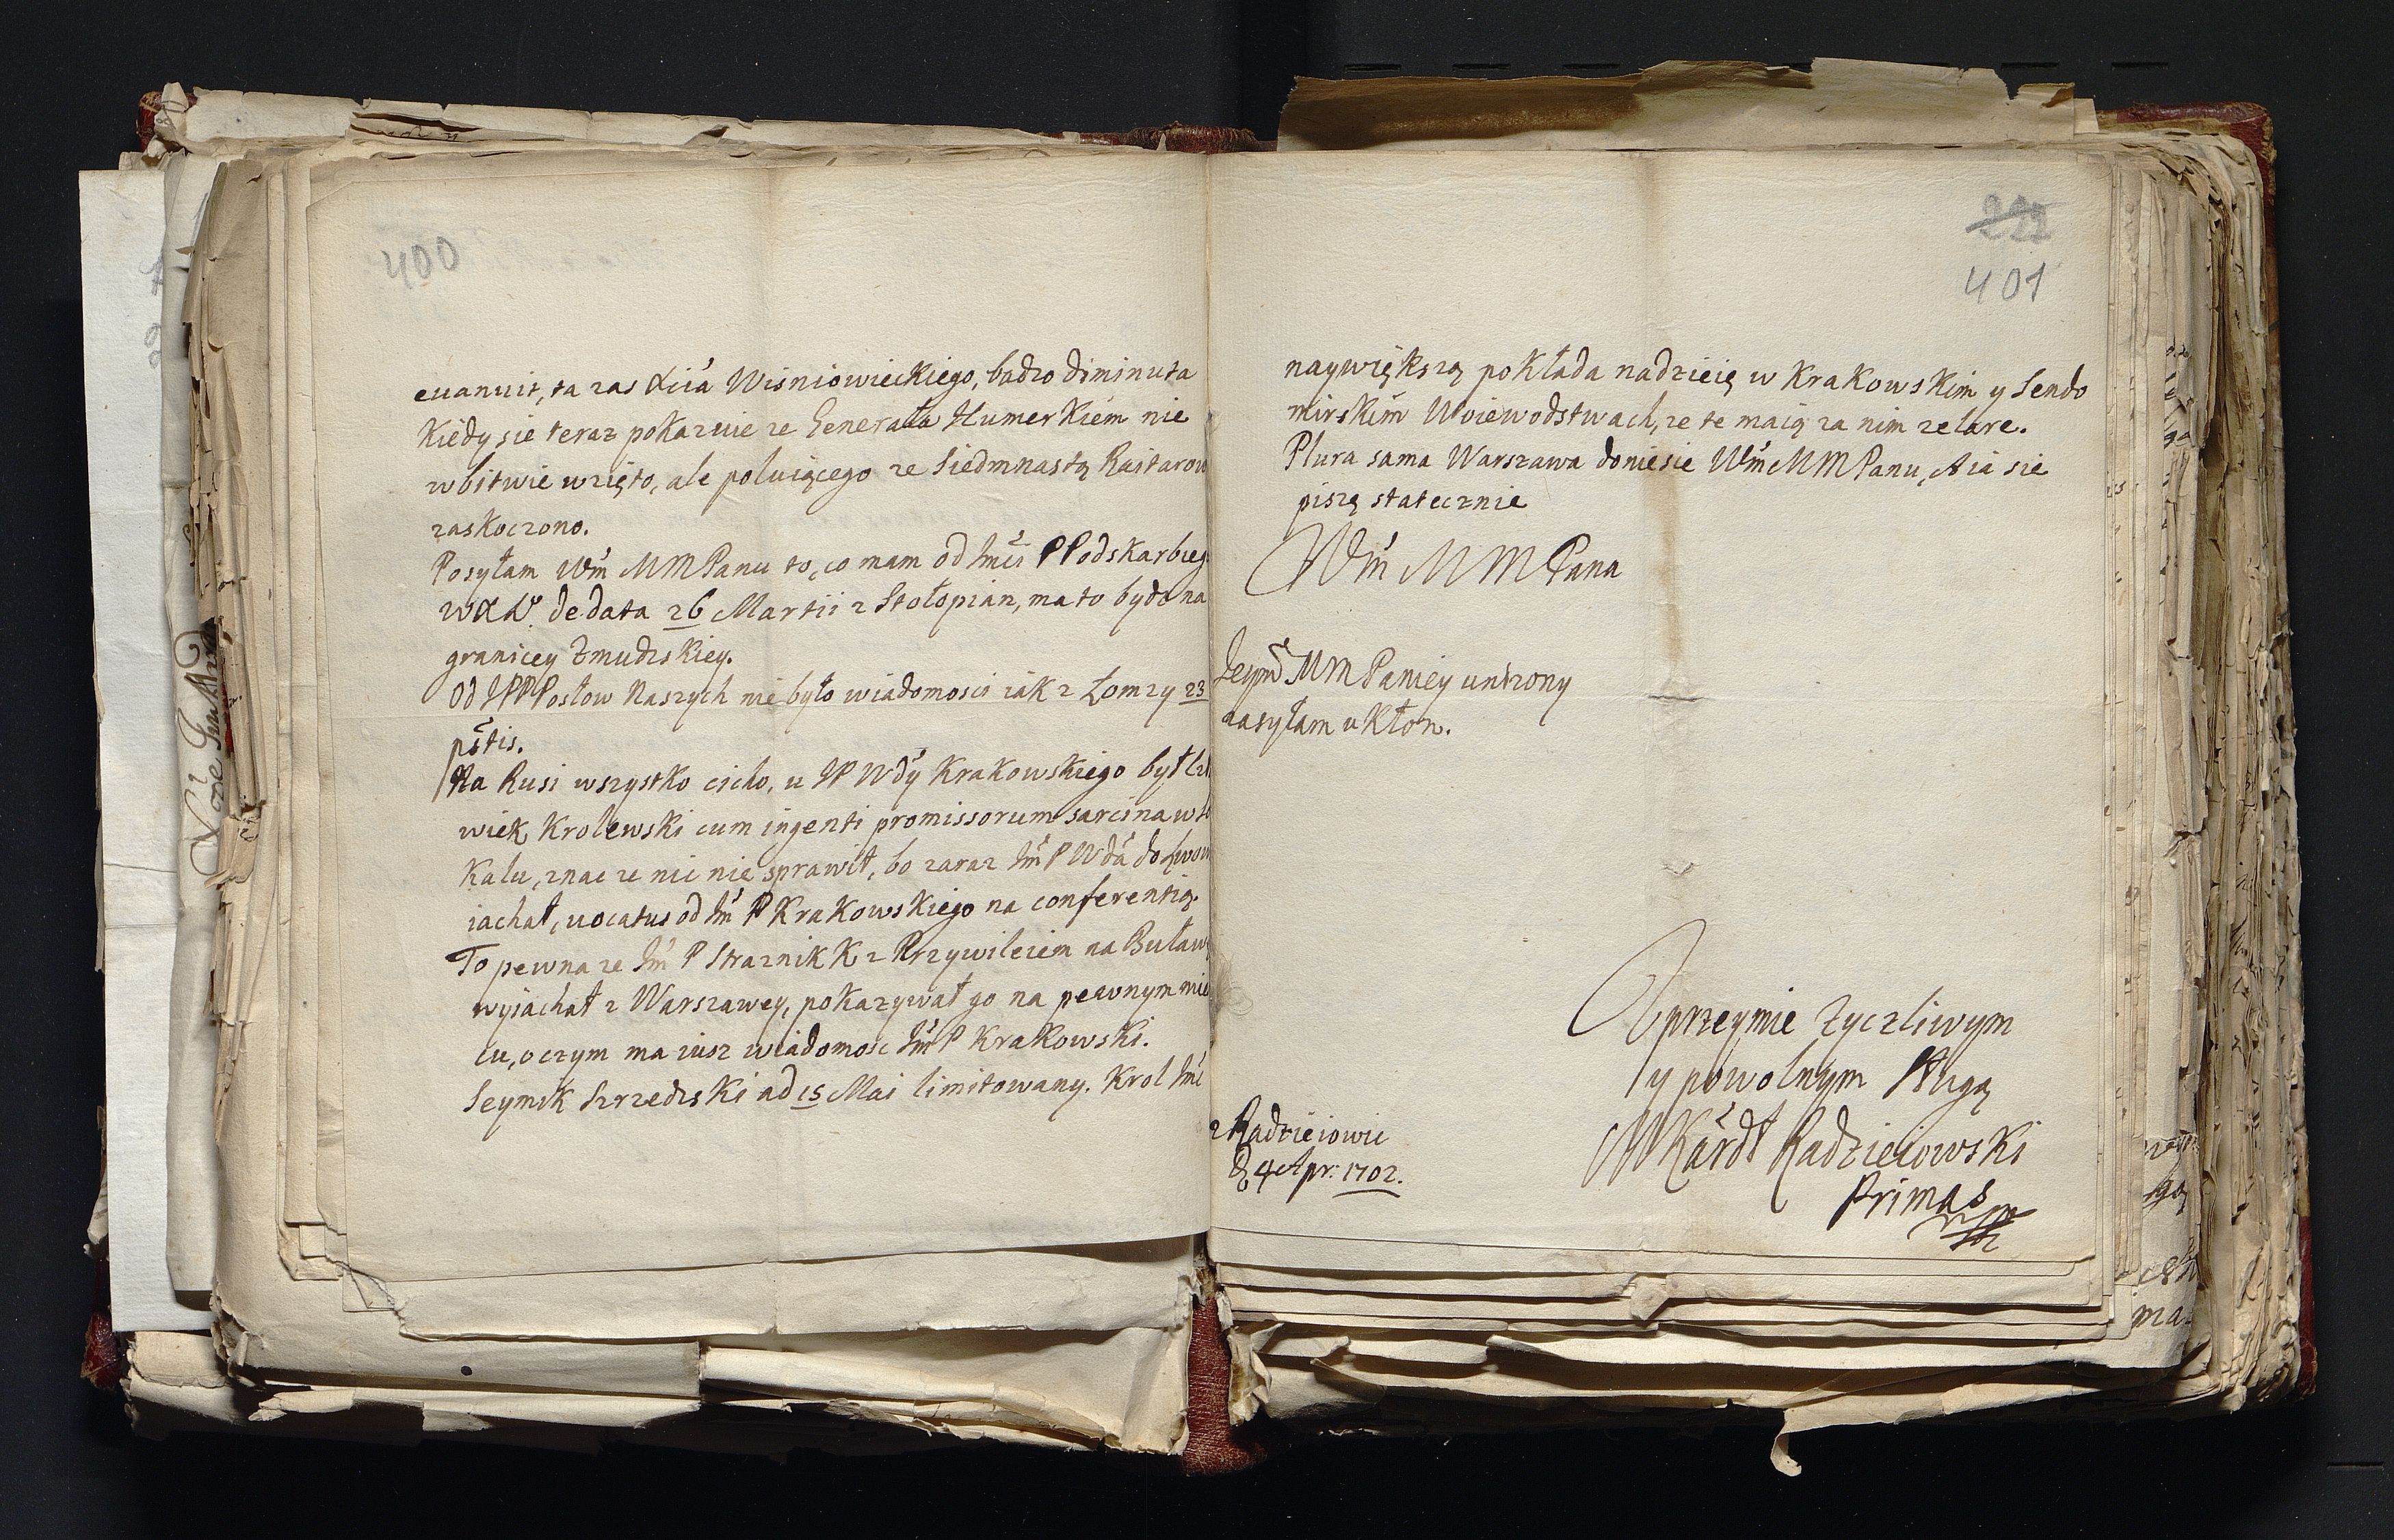 400
euanuit, ta zas Xcia Wisniowieckiego, badzo diminuta
Kiedy sie teraz pokazuie ze Generała Humerkiem nie
w bitwie wzięto, ale poluiącego ze Siedmnastą Raitarow
zaskoczono.
Posyłam Wm MM Panu to, co mam od Jmci P Podskarbieg
WXL. de data 26 Martii z Stołopian, ma to bydz na
granicey Zmudzkiey.
Od JPP Posłow Naszych nie było wiadomosci iak z Łomzy 23
pstis.
Na Rusi wszystko cicho, u JP Wdy Krakowskiego był
wiek Krolewski cum ingenti promissorum sarcina w
kalu, znac ze nic nie sprawił, bo zaraz Jm P Wda do Lwow
iachał, uocatus od Jm P Krakowskiego na conferentią.
To pewna ze Jm P Straznik K z Przywileiem na Buław
wyiachał z Warszawey, pokazywał go na pewnym mie
cu, o czym ma iusz wiadomosc Jm P Krakowski.
Seymik Srzedzki ad 15 Mai limitowany. Krol Jmc
222
401
naywiększą pokłada nadzieię w Krakowskim y Sendo
mirskim Woiewodstwach, ze te maią za nim zelare.
Plura sama Warszawa doniesie Wm MM Panu, A ia sie
piszą statecznie
Wm MM Pana
Jeymci MM Paniey unizony
zasyłam ukłon.
Uprzeymie zyczliwym
y powolnym Sługą
MKardł Radzieiowski
Primas
z Radzieiowic
D 4 Apr: 1702.